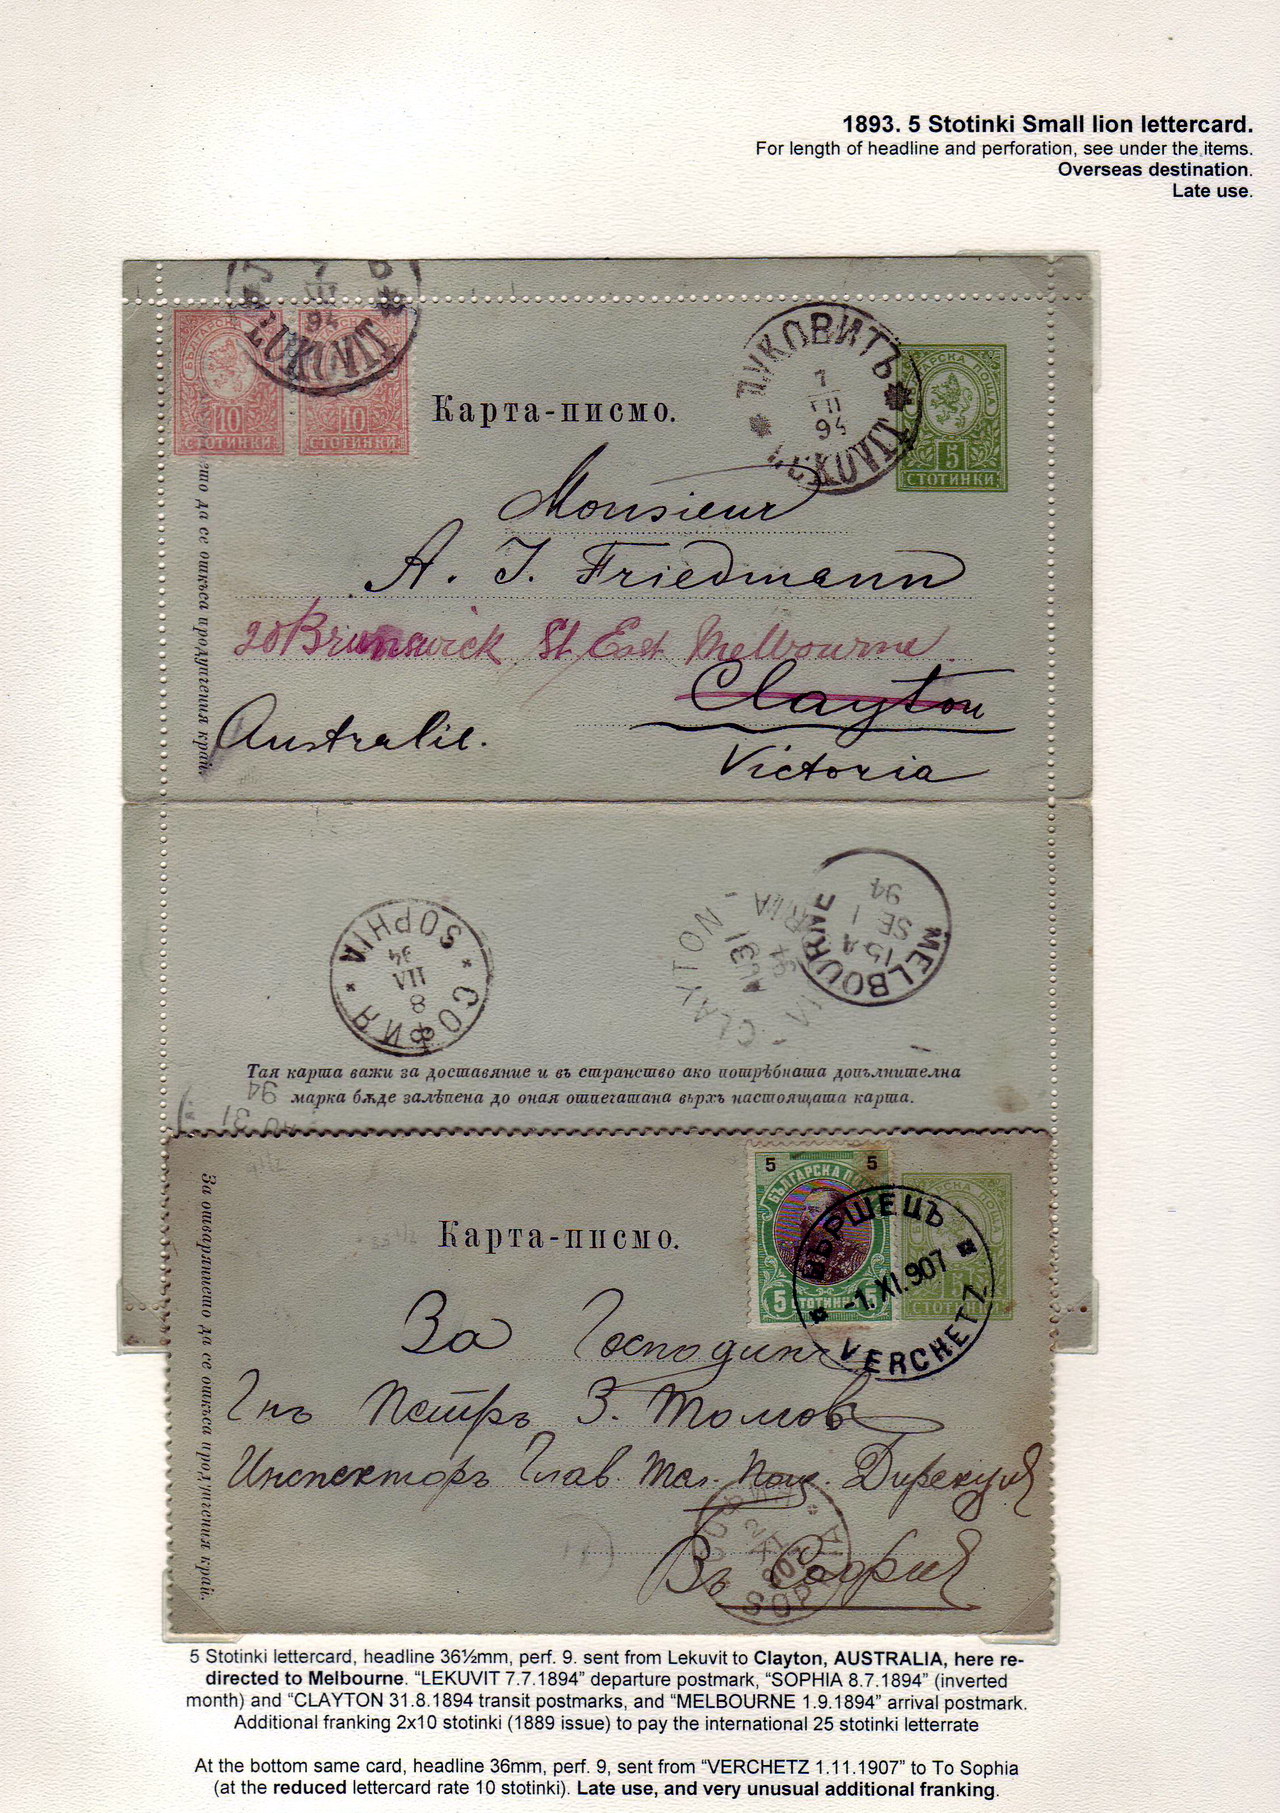 1893. 5 Stotinki Small lion lettercard.
For length of headline and perforation, see under the items.
Overseas destination.
Late use.
7
94
LUKUVIT
БЪЛГАРСКА
10 10
СТОТИНКИ СТОТИНКИ
Карта-писмо.
ЛУКОВИТЪ
7
VII
94
LUKUVIT
БЪЛГАРСКА ПОЩА
5
СТОТИНКИ
да се откъса продупчения край.
Monsieur
A. J. Friedmann
20 Brunswick St East Melbourne
Clayton
Australie.
Victoria
SOPHIA
94
VII
8
СОФИЯ
CLAYTON
AU 31
94
VICTORIA
MELBOURNE
15 A
SE 1
94
Тая карта важи за доставяние и въ странство ако потрѣбната допълнителна
марка бѫде залѣпена до оная отпечатана върхъ настоящата карта.
94
AU 31
За отварянието да се откъса продупчения край.
Карта-писмо.
5 5
БЪЛГАРСКА
5 СТОТИНКИ 5
ВЪРШЕЦЪ
-1.XI.907
VERCHETZ
СТОТИНКИ
За Господин
Г-нъ Петръ З. Томовъ
Инспекторъ Глав. Тел. Пощ. Дирекция
Въ София
907
SOPHIA
5 Stotinki lettercard, headline 36½mm, perf. 9. sent from Lekuvit to Clayton, AUSTRALIA, here re-
directed to Melbourne. “LEKUVIT 7.7.1894” departure postmark, “SOPHIA 8.7.1894” (inverted
month) and “CLAYTON 31.8.1894 transit postmarks, and “MELBOURNE 1.9.1894” arrival postmark.
Additional franking 2x10 stotinki (1889 issue) to pay the international 25 stotinki letterrate
At the bottom same card, headline 36mm, perf. 9, sent from “VERCHETZ 1.11.1907” to To Sophia
(at the reduced lettercard rate 10 stotinki). Late use, and very unusual additional franking.